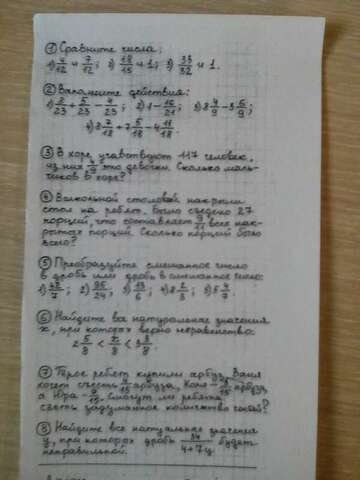 ① Сравните числа:
1) 4/12 и 7/12; 2) 18/15 и 1; 3) 33/32 и 1.
② Выполните действия:
1) 2/23 + 5/23 - 4/23; 2) 1 - 16/21; 3) 8 4/9 - 3 6/9;
4) 8 7/18 + 7 5/18 - 4 11/18.
③ В хоре участвуют 117 человек,
из них /9 это девочки. Сколько маль-
чиков в хоре?
④ В школьной столовой накрыли
стол на ребят. Было съедено 27
порций, что составляет 9/ всех нак-
рытых порций. Сколько порций было
всего?
⑤ Преобразуйте смешанное число
в дробь или дробь в смешанное число:
1) /7; 2) 95/24; 3) 13/6; 4) 8 2/3; 5) 5 4/7
⑥ Найдите все натуральные значения
x, при которых верно неравенство:
2 5/8 < x/8 < 3 3/8
⑦ Трое ребят купили арбуз. Ваня
хочет съесть 4/15 арбуза, Коля - /15 арбуза,
а Юра - /15. Смогут ли ребята
съесть задуманное количество частей?
⑧ Найдите все натуральные значения
y, при которых дробь 34/4+7y будет
неправильной.